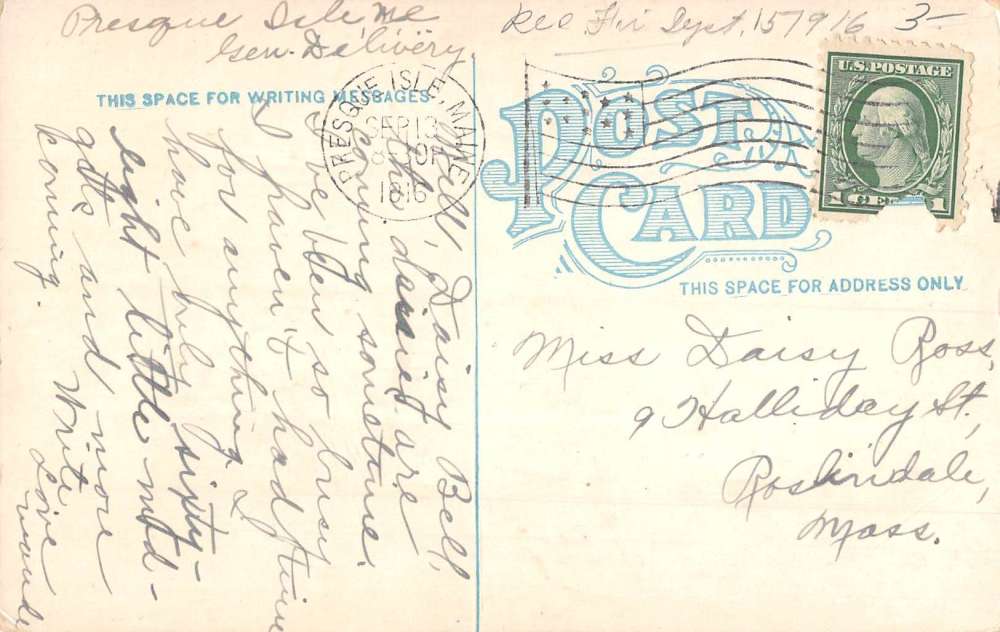 Presque Isle Me
Gen. Delivery
Rec Fri Sept. 15 1916 3-
THIS SPACE FOR WRITING MESSAGES
PRESQUE ISLE, MAINE
SEP 13
1916
U.S. POSTAGE
1 1
POST CARD
THIS SPACE FOR ADDRESS ONLY
Well, Daisy Bell,
the dearied are
enjoying sometime.
I've been so busy
I haven't had time
for anything. I
have only sixty-
eight little mid-
gets and more
coming. Write
Love
Maude
Miss Daisy Ross,
9 Halliday St.,
Roslindale,
Mass.